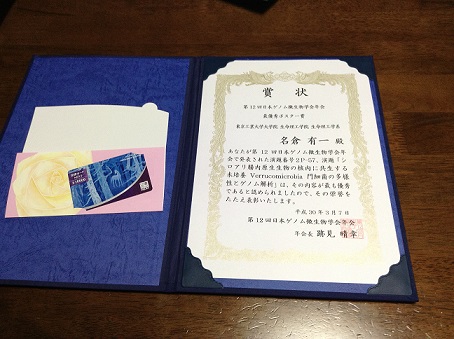 賞 状
第12回日本ゲノム微生物学会年会
最優秀ポスター賞
東京工業大学大学院 生命理工学院 生命理工学系
名倉 有一 殿
あなたが第 12 回日本ゲノム微生物学会年
会で発表された演題番号2P-57、演題「シ
ロアリ腸内原生生物の核内に共生する
未培養 Verrucomicrobia 門細菌の多様
性とゲノム解析」は、その内容が最も優秀
であると認められましたので、その栄誉を
たたえ表彰いたします。
平成30年3月7日
第12回日本ゲノム微生物学会年会
年会長 跡見 晴幸